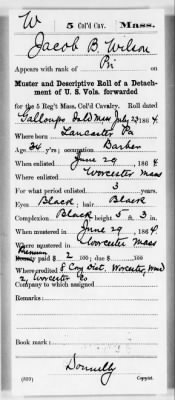 W 5 Col'd Cav. Mass.
Jacob B. Wilson
Appears with rank of Pri on
Muster and Descriptive Roll of a Detach-
ment of U. S. Vols. forwarded
for the 5 Reg't Mass. Col'd Cavalry. Roll dated
Galloups Isld Mass July 23 1864
Where born Lancaster Pa
Age 34 y'rs; occupation Barber
When enlisted June 29, 1864
Where enlisted Worcester Mass
For what period enlisted 3 years.
Eyes Black; hair Black
Complexion Black; height 5 ft. 3 in.
When mustered in June 29, 1864
Where mustered in Worcester Mass
Bounty paid $ 2 100; due $ 100
Where credited 8 Con Dist. Worcester, Ward
2, Worcester Co
Company to which assigned
Remarks:
Book mark:
Donnelly
(339) Copyist.